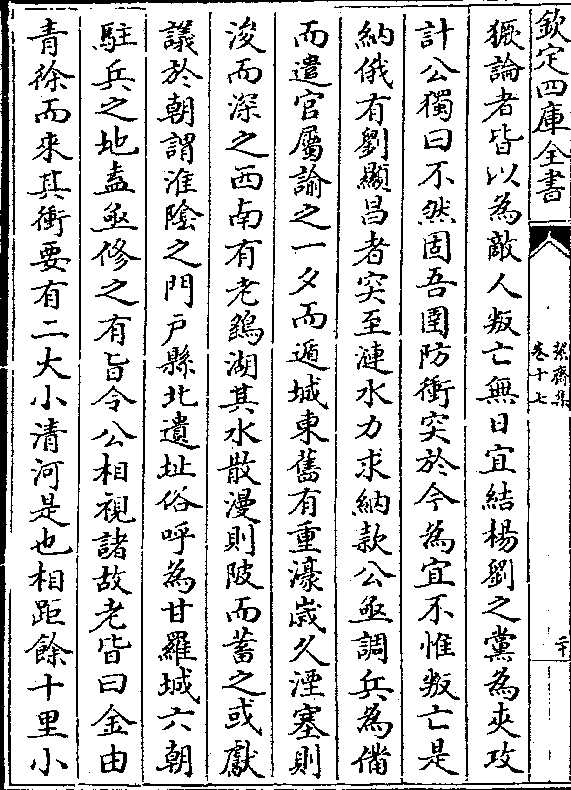 欽定四庫全書
絜齋集
卷十七
二十
獗論者皆以為敵人叛亡無日宜結楊劉之黨為夾攻
計公獨曰不然固吾圉防衝突於今為宜不惟叛亡是
納俄有劉顯昌者突至漣水力求納款公亟調兵為備
而遣官屬諭之一夕而遁城東舊有重濠歲久湮塞則
浚而深之西南有老鸛湖其水散漫則陂而蓄之或獻
議於朝謂淮陰之門戶縣北遺址俗呼為甘羅城六朝
駐兵之地盍亟修之有旨令公相視諸故老皆曰金由
青徐而來其衝要有二大小清河是也相距餘十里小